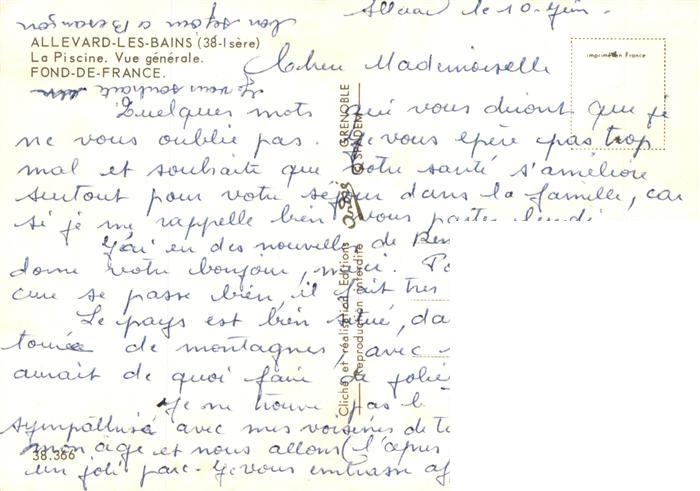 ALLEVARD-LES-BAINS (38-Isère)
La Piscine. Vue générale.
FOND-DE-FRANCE.
imprimé en France
le 10 Juin.
Chère Mademoiselle
Quelques mots qui vous diront que je
ne vous oublie pas. Je vous epère pas trop
mal et souhaite que votre santé s'améliore
surtout pour votre séjour dans la famille, car
si je me rappelle bien vous partez lundi
J'ai eu des nouvelles de
donné votre bonjour, merci.
cure se passe bien, il fait très
Le pays est bien situé, da
de montagnes, avec
aurait de quoi faire de jolie
Je me trouve pas
sympathisé avec mes voisines de
mon âge et nous allons (l'après
un joli parc. Je vous embrasse
bon séjour à Besançon
Je vous souhaite un
38.366
Cliché et réalisation Editions
André
GRENOBLE
Reproduction interdite
© SPADEM